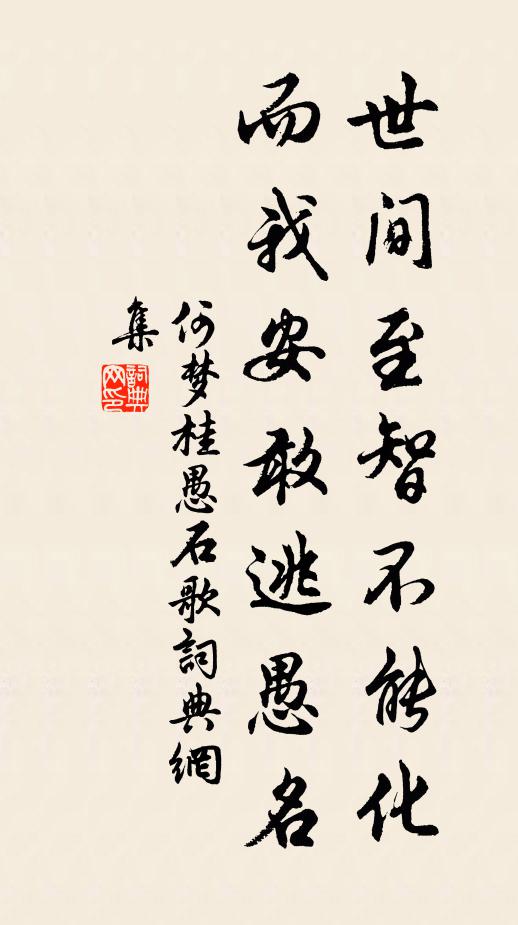 世间至智不能化
而我安敢逃愚名
何梦桂愚石歌詞典網
集
詞典
网印